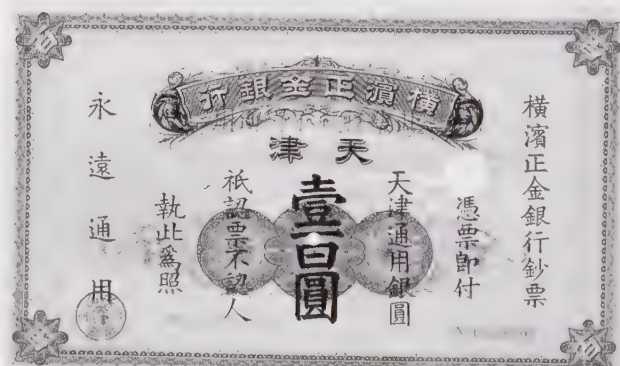 橫濱正金銀行
天津
橫濱正金銀行鈔票
憑票即付
天津通用銀圓
壹百圓
祇認票不認人
執此爲照
永遠通用